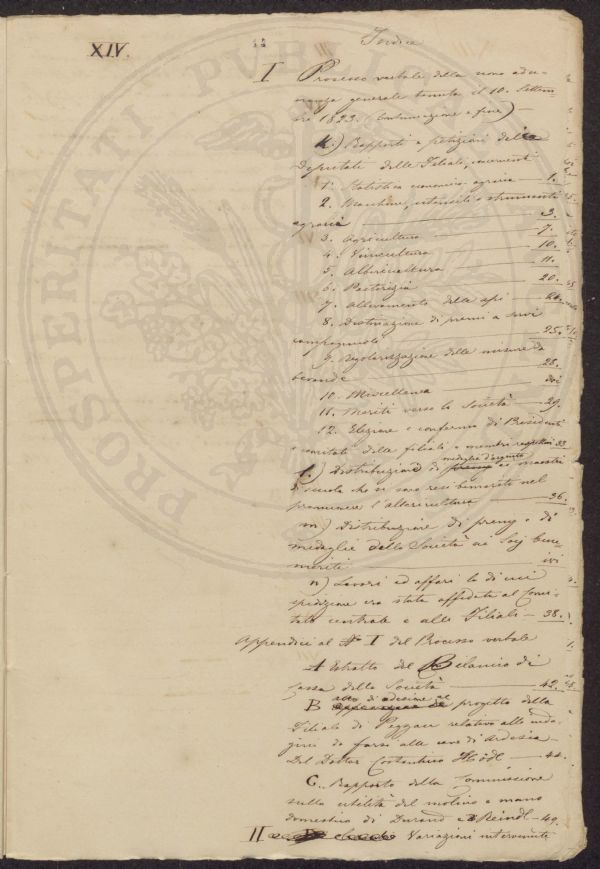 XIV.
Indice
I Processo verbale della nona adu-
nanza generale tenuta il 10. Settem-
bre 1823. (Continuazione e fine)
K.) Rapporti e petizioni dei
Deputati delle Filiali, concernenti
1. Statistica economico-agraria — 1.
2. Macchine, utensili e strumenti
agrarii — 3.
3. Agricoltura — 7.
4. Vinicultura — 10.
5. Albericultura — 11.
6. Pastorizia — 20.
7. Allevamento delle api — 24.
8. Destinazione di premi a servi
campagnuoli — 25.
9. Regolarizzazione delle misure da
bevande — 28.
10. Miscellanea — ivi
11. Meriti verso la Società — 29.
12. Elezione e conferma di Presidenti
e comitati delle filiali e membri rispettivi 33
l.) Distribuzione di medaglie d'argento ai maestri
di scuola che si sono resi benemeriti nel
promuovere l'albericultura — 36.
m.) Distribuzione di premj e di
medaglie della Società ai Socj bene-
meriti — ivi
n) Lavori ed affari la di cui
spedizione era stata affidata al Comi-
tato centrale e alle Filiali — 38.
Appendici al No I del Processo verbale
A Estratto del Bilancio di
Cassa della Società — 42.
B atto di adesione al progetto della
Filiale di Peggau relativo alle inda-
gini da farsi alle cave di Ardesia
Del Dottor Costantino Hödl — 44.
C. Rapporto della Commissione
sulla utilità del molino a mano
domestico di Durand e Reindl — 49.
II Variazioni intervenute
PROSPERITATI PUBLICAE